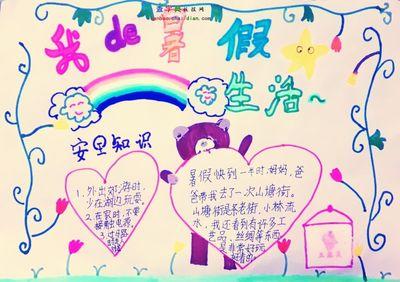 查字典教投网
我de暑假
生活~
安里知识
1.外出郊游时,
少在湖边玩耍。
2.在家时,不要
接触电源。
暑假快到一半时,妈妈、爸
爸带我去了一次山塘街。
山塘街很条老街,小桥流
水,我还看到有许多工
艺品、丝绸等东西,
是非常好玩